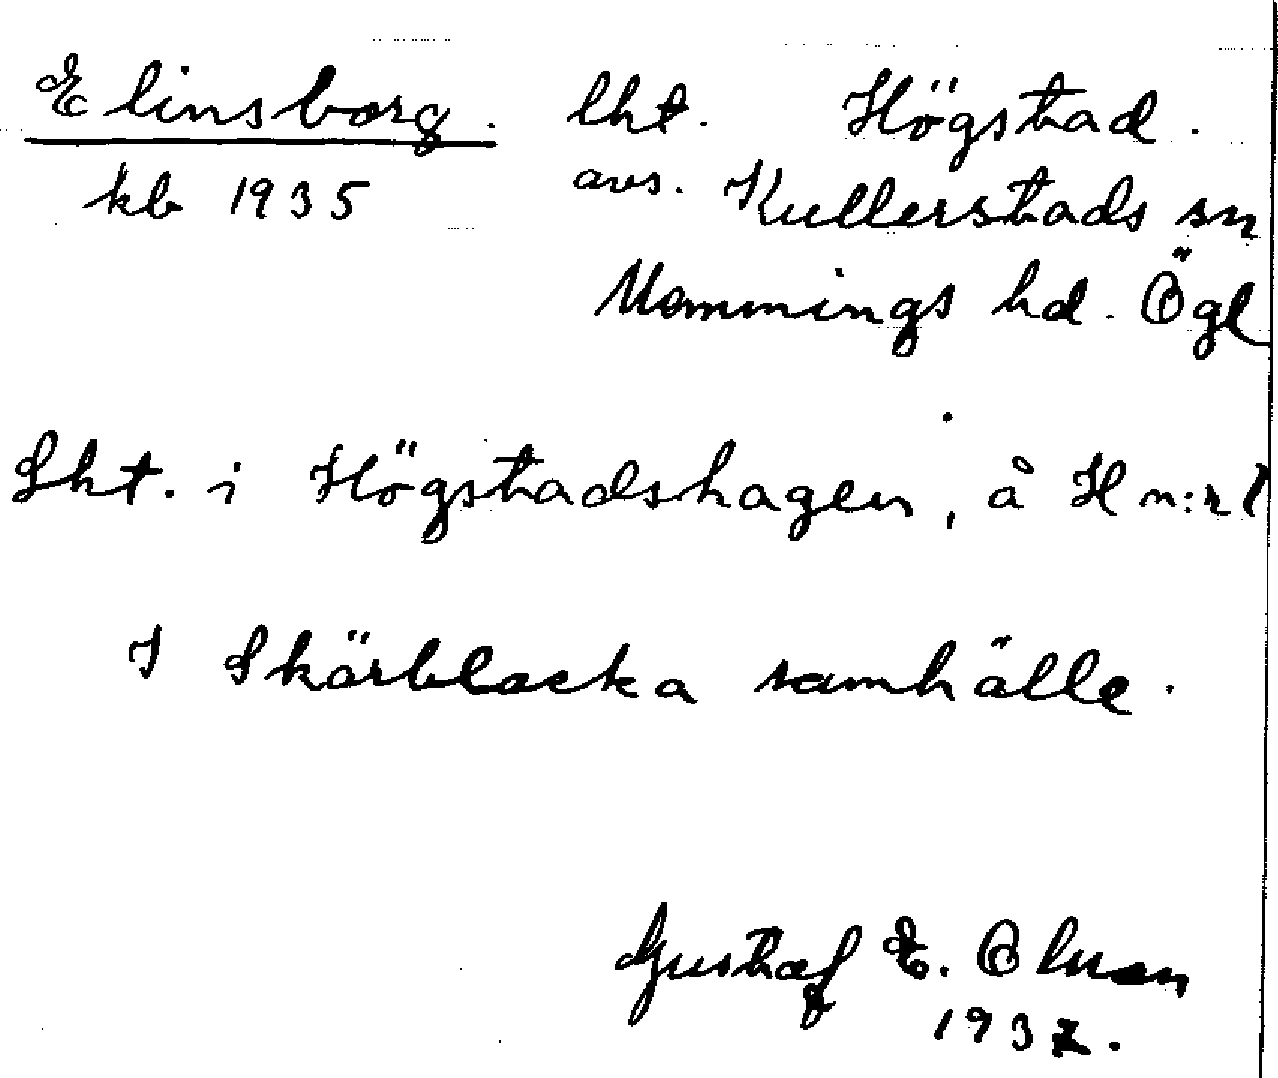 Elinsborg. lht. Högstad.
kb 1935 avs. Kullerstads sn
Memmings hd. Ögl
Lht. i Högstadshagen, å H n:r 1
I Skärblacka samhälle.
Gustaf E. Olsson
1937.